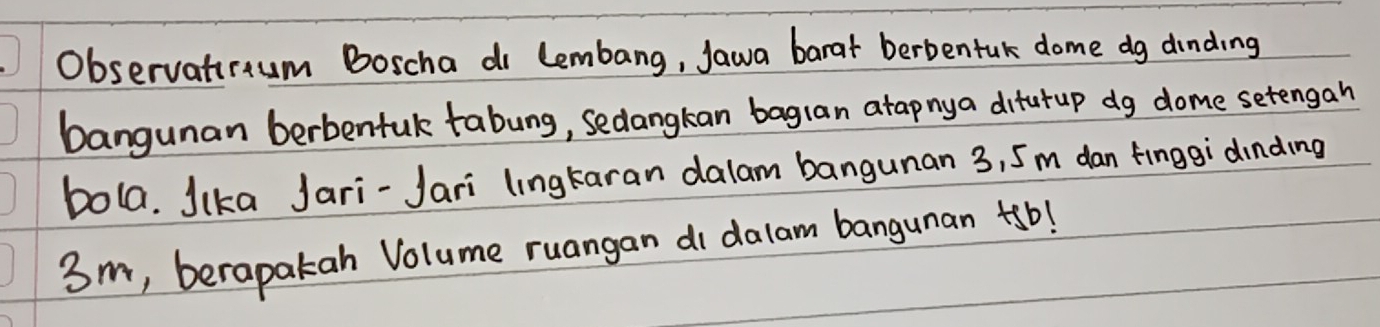 Observatirium Boscha di Lembang, Jawa barat berbentuk dome dg dinding
bangunan berbentuk tabung, sedangkan bagian atapnya ditutup dg dome setengah
bola. Jika Jari-Jari lingkaran dalam bangunan 3,5 m dan tinggi dinding
3m, berapakah Volume ruangan di dalam bangunan tsb!